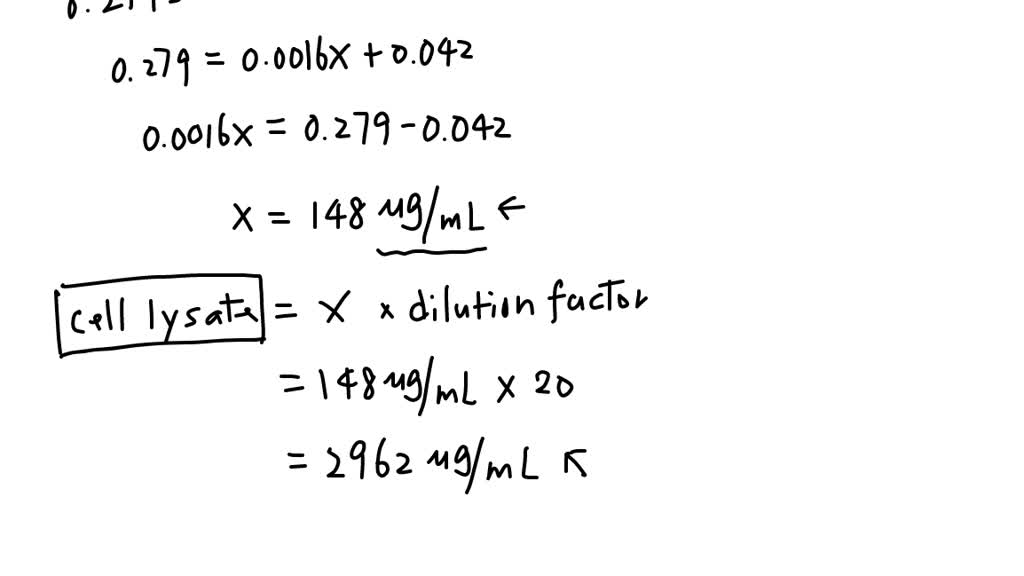 0.279 = 0.0016x + 0.042
0.0016x = 0.279 - 0.042
x = 148 μg/mL ←
cell lysate = x × dilution factor
= 148 μg/mL × 20
= 2962 μg/mL ↖